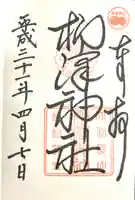 奉拝
柳澤神社
平成三十一年四月七日